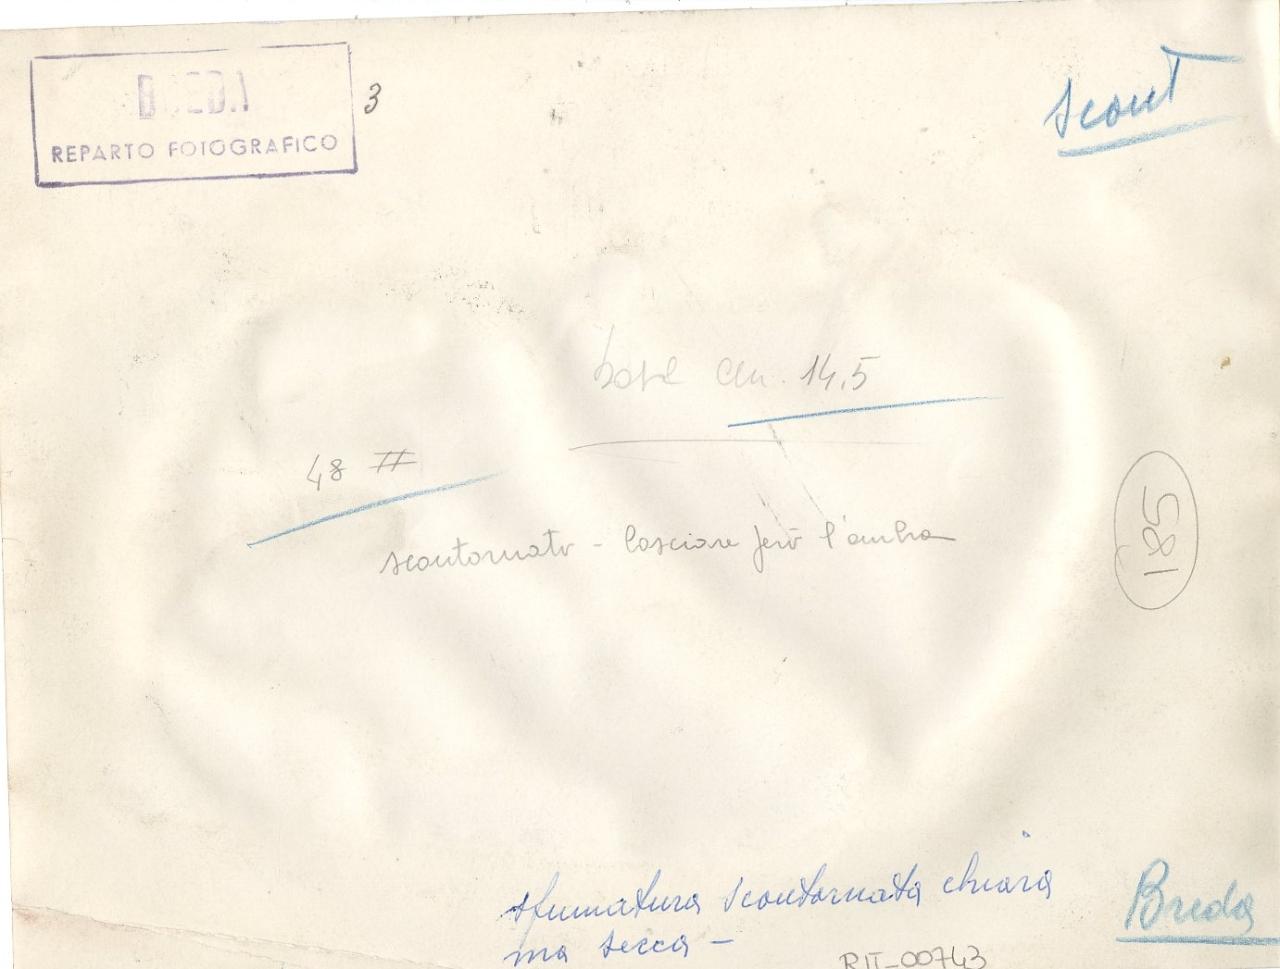 BREDA
REPARTO FOTOGRAFICO
3
scout
base cm. 14,5
48 #
scontornato - lasciare però l'ombra
185
sfumatura scontornata chiara
ma secca -
Breda
RIT-00743